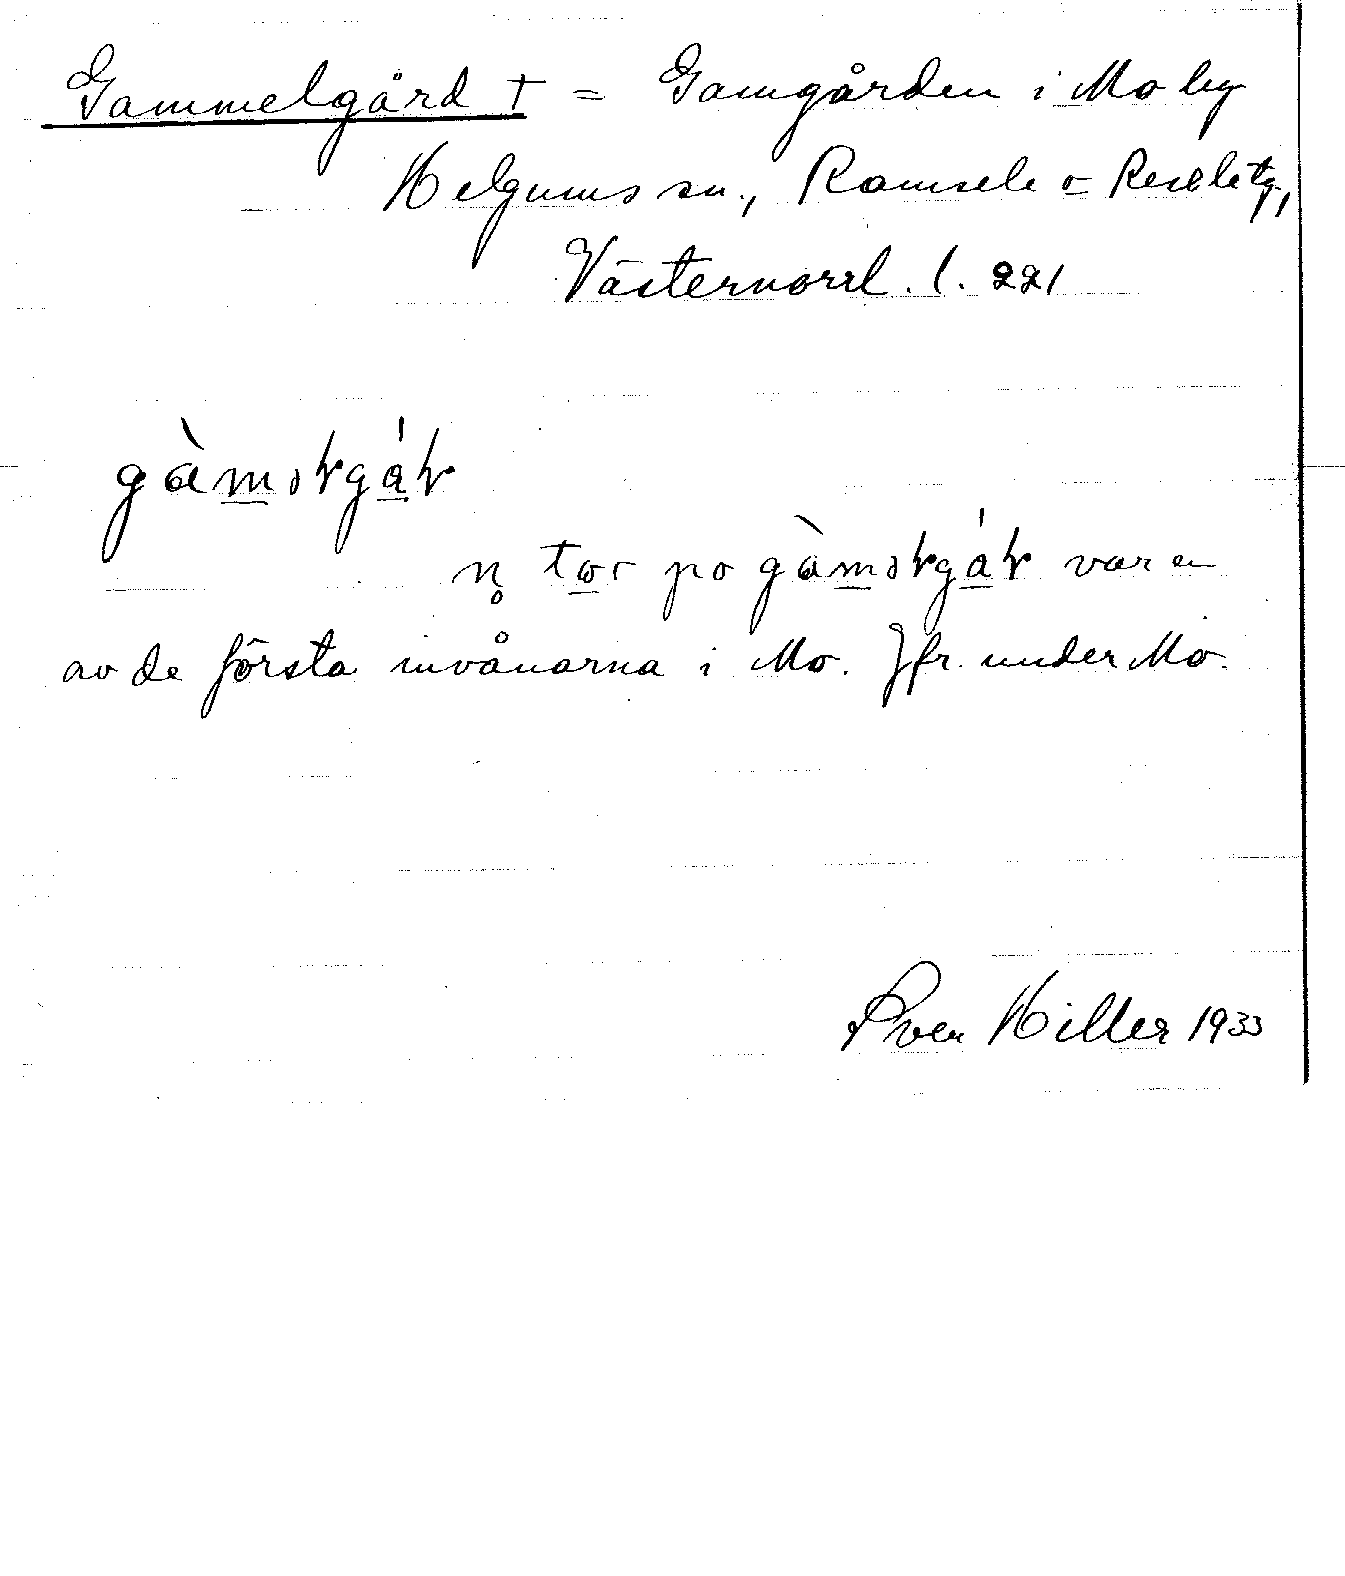 Gammelgård † = Gamgården i Mo by
Helgums sn., Ramsele o Resele tg,
Västernorrl. l. 221
var en
av de första invånarna i Mo. Jfr. under Mo.
Sven Hiller 1933